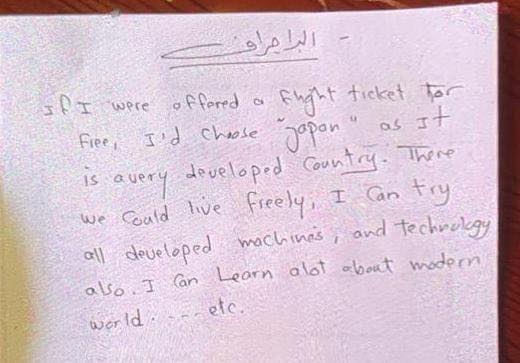 - البراجراف
If I were offered a flight ticket for
free, I'd choose "Japan" as It
is avery developed country. There
we Could live freely, I Can try
all developed machines, and technology
also. I Can Learn alot about modern
world. ---- etc.